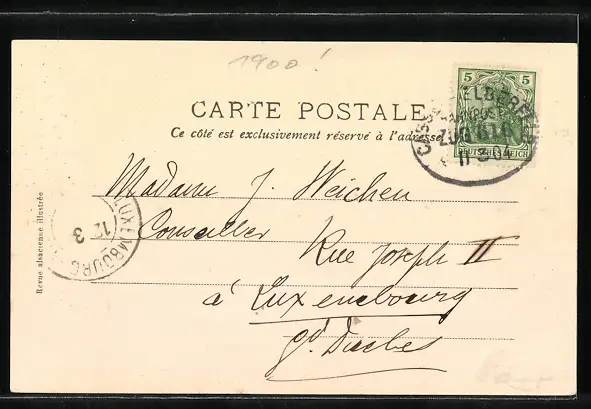 1900!
CARTE POSTALE
Ce côté est exclusivement réservé à l'adresse
5 5
DEUTSCHES REICH
ZUG
11 3 04
Madame J. Weicken
Conseiller Rue Joseph II
à Luxembourg
gd Duché
LUXEMBOURG
12 3
Revue alsacienne illustrée